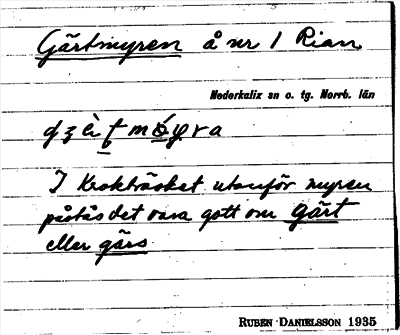 Gärtmyren å nr 1 Rian
Nederkalix sn o. tg. Norrb. län
I Krokträsket utanför myren
påstås det vara gott om gärt
eller gärs.
RUBEN DANIELSSON 1935